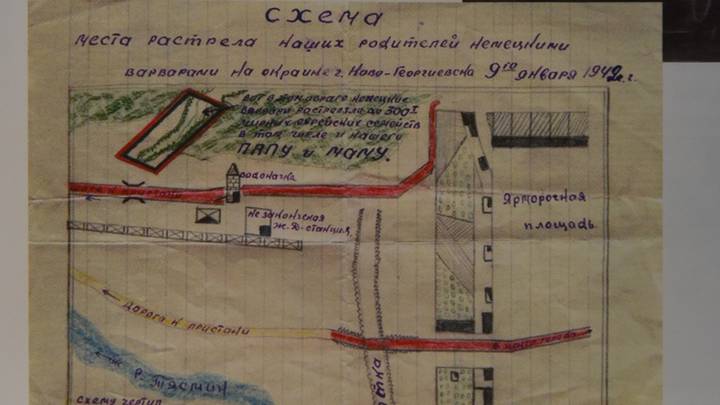 СХЕМА
места растрела наших родителей немецкими
варварами на окраине г. Ново-Георгиевска 9го января 1942 г.
вот в том овраге немецкие
варвары растреляли до 300х
мирных еврейских семейств
в том числе и нашего
ПАПУ и МАМУ.
дорога к пристани
водокачка
незаконченая
ж.д-станция
Ярморочная
площадь
дорога к пристани
в центр города
р. Тясмин
схему чертил